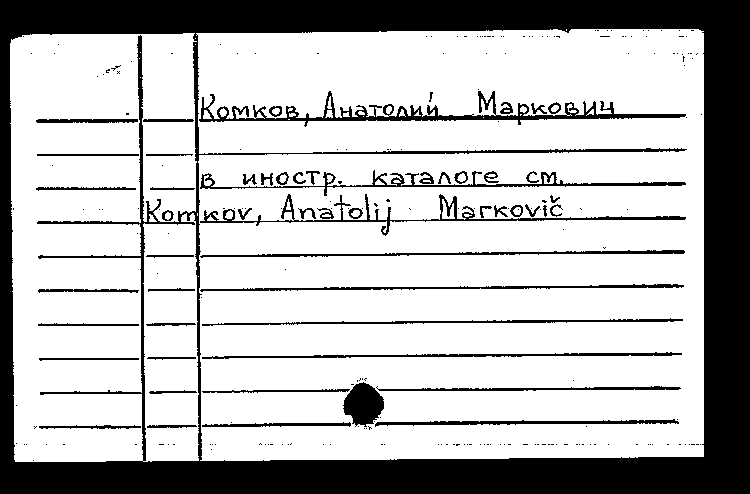 Комков, Анатолий Маркович
в иностр. каталоге см.
Komkov, Anatolij Markovič